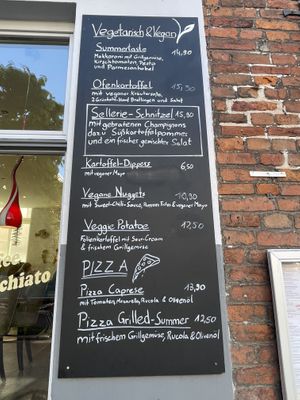 Vegetarisch & Vegan
Summertaste 14,90
Makkaroni mit Grillgemüse,
Kirschtomaten, Pesto
und Parmesanhobel
Ofenkartoffel 15,50
mit veganer Kräutersoße,
und Salat
Sellerie-Schnitzel 15,90
mit gebratenen Champignons
dazu Süßkartoffelpommes
und ein frischer gemischter Salat
Kartoffel-Dippers 6,50
mit veganer Mayo
Vegane Nuggets 10,90
mit Sweet-Chili-Sauce, Pommes Frites & veganer Mayo
Veggie Potatoe 12,50
Folienkartoffel mit Sour-Cream
& frischem Grillgemüse
PIZZA
Pizza Caprese 13,90
mit Tomaten, Mozzarella, Rucola & Olivenöl
Pizza Grilled-Summer 12,50
mit frischem Grillgemüse, Rucola & Olivenöl
chiato